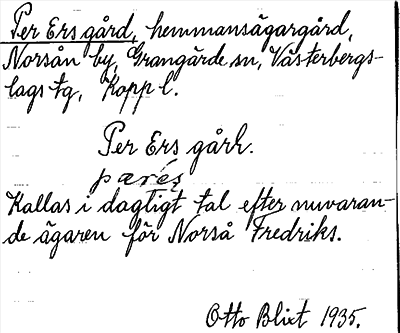 Per Ers gård, hemmansägargård,
Norsån by, Grangärde sn, Västerbergs-
lags tg, Kopp l.
Per Ers gård.
Kallas i dagligt tal efter nuvaran-
de ägaren för Norså Fredriks.
Otto Blixt 1935.